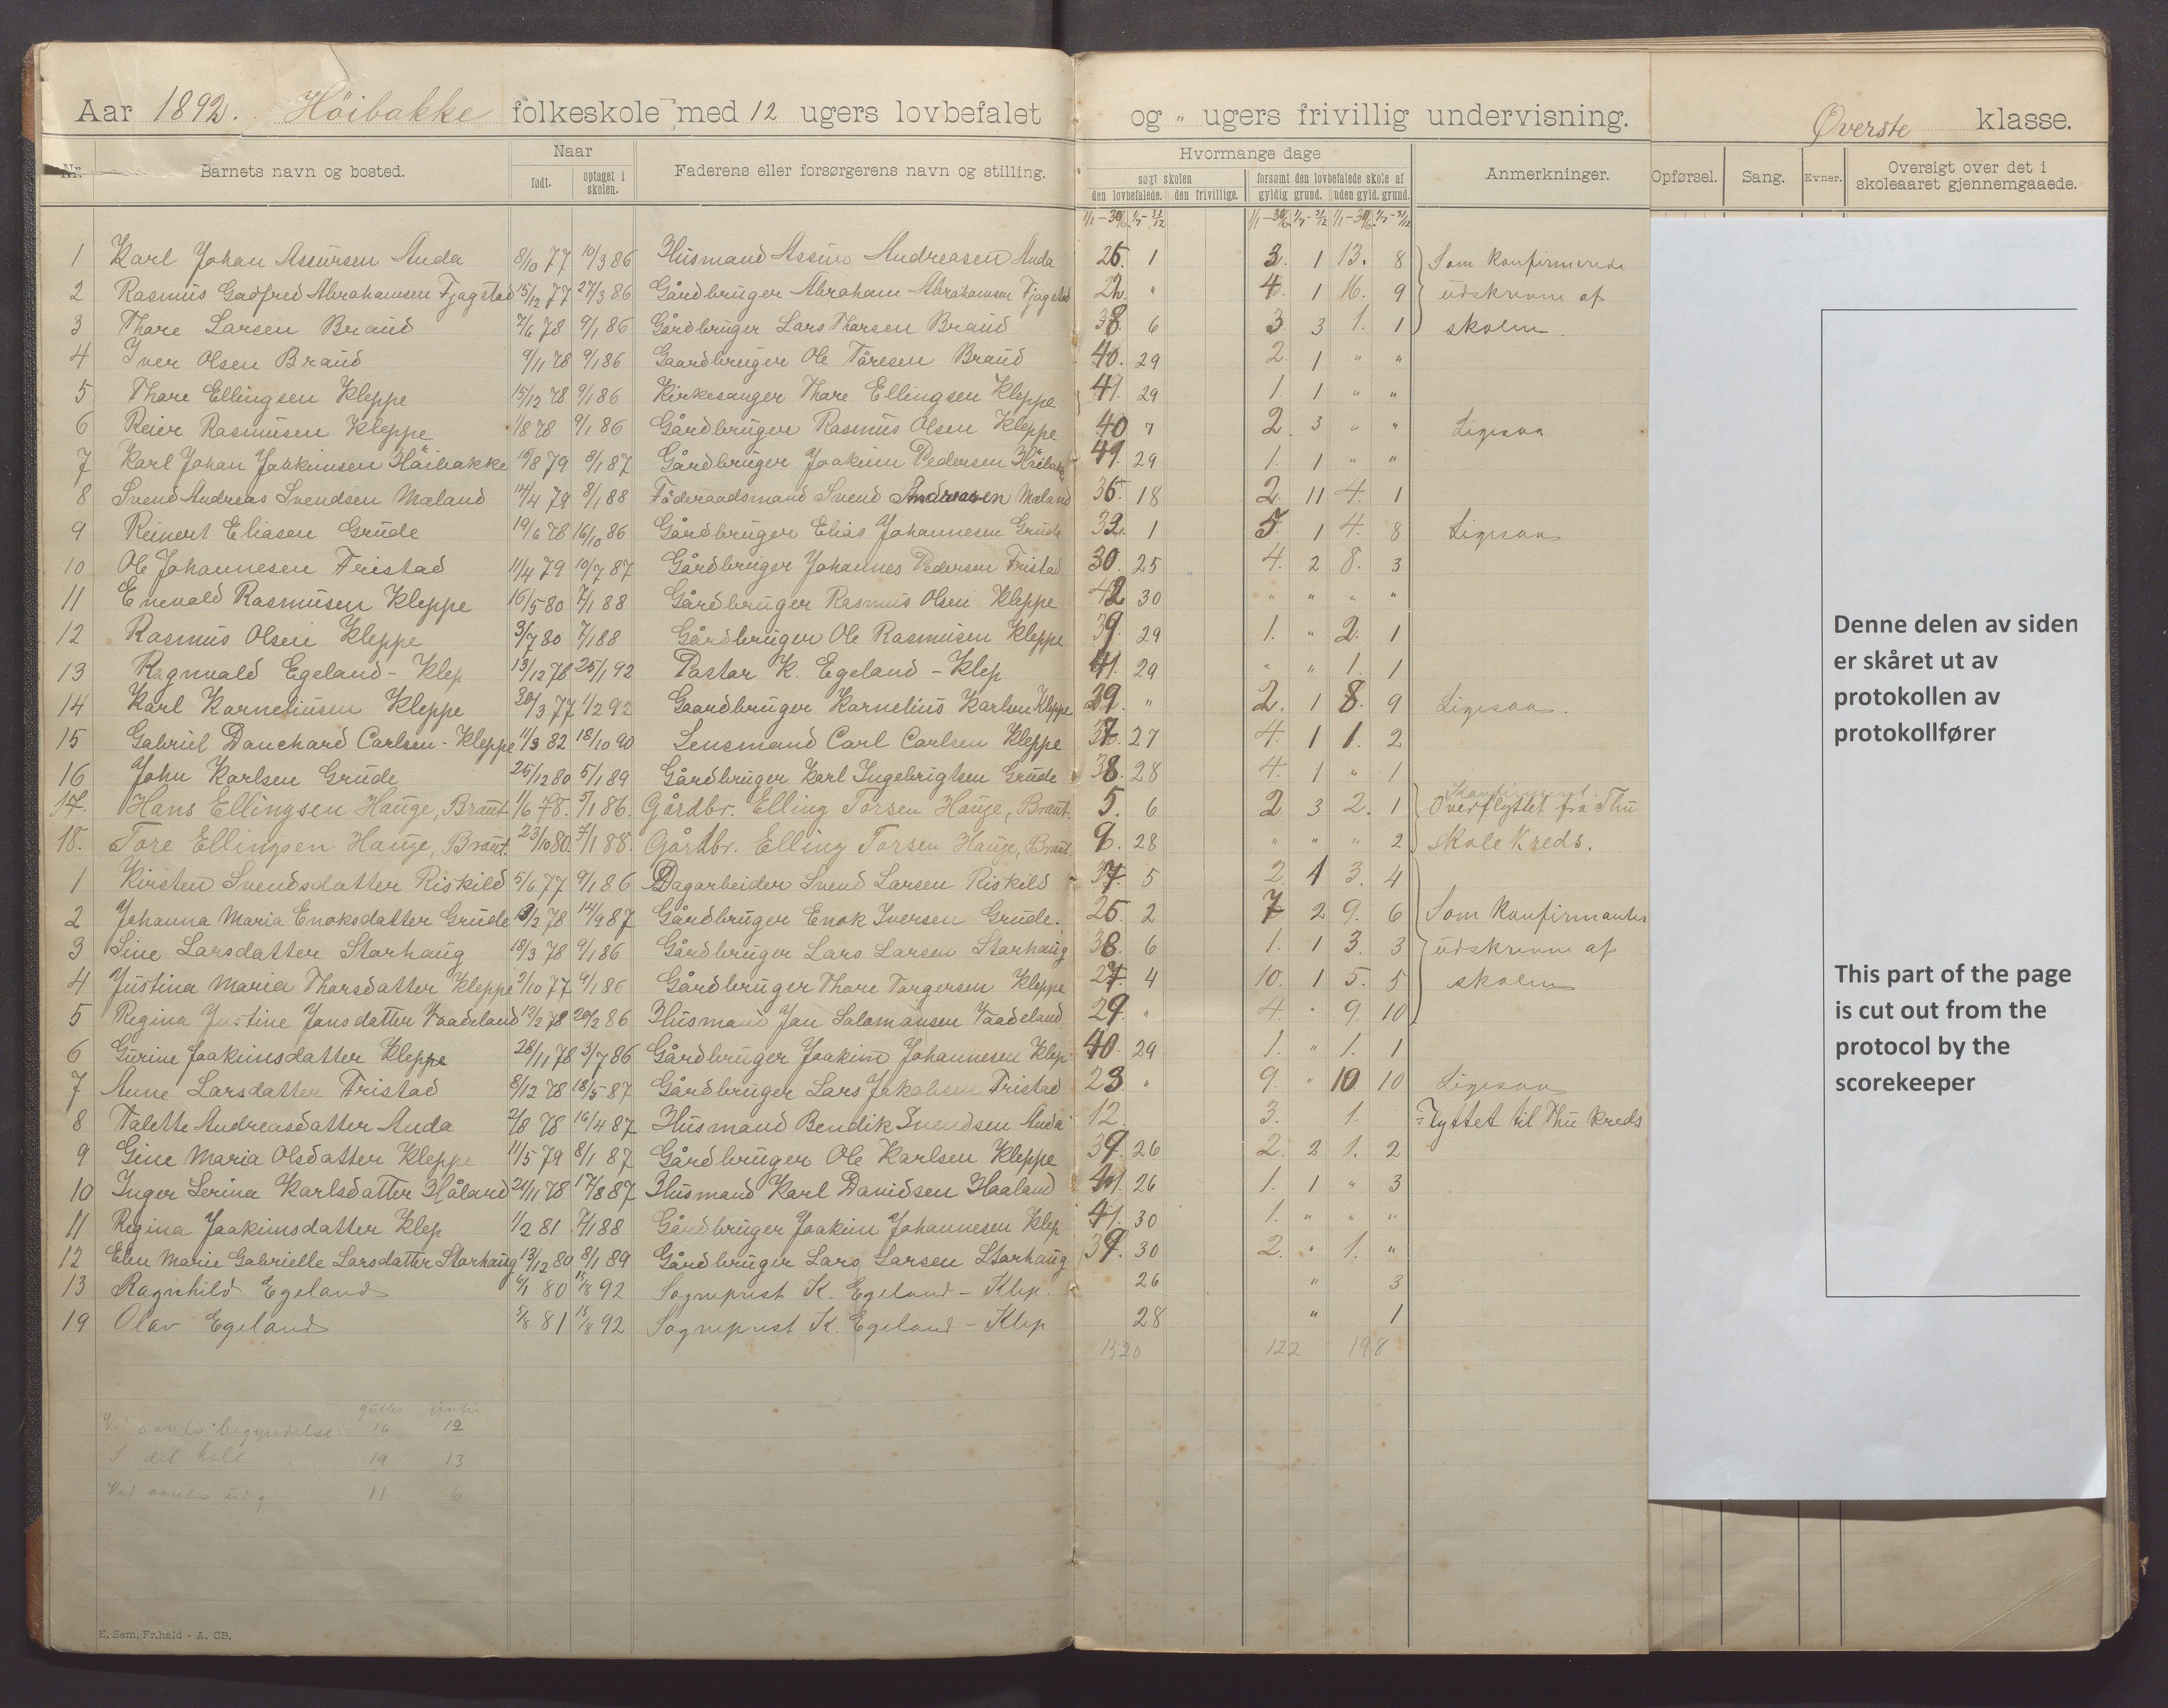 Aar 1892. Höibakke folkeskole med 12 ugers lovbefalet og " ugers frivillig undervisning. Øverste klasse.
Nr. Barnets navn og bosted. Naar født. optaget i skolen. Faderens eller forsørgerens navn og stilling. Hvormange dage søgt skolen den lovbefalede. den frivillige. forsømt den lovbefalede skole af gyldig grund. uden gyld. grund. Anmerkninger. Opførsel. Sang. Evner. Oversigt over det i skoleaaret gjennemgaaede.
1/1-30/6 1/7-31/12 1/1-30/6 1/7-31/12 1/1-30/6 1/7-31/12
1 Karl Johan Assursen Anda 8/10 77 10/3 86 Husmand Assur Andreasen Anda 25. 1 3. 1 13. 8 Som konfirmerede
2 Rasmus Gadfred Abrahamsen Fjagstad 15/12 77 27/3 86 Gårdbruger Abraham Abrahamsen Fjagstad 22. " 4. 1 16. 9 udskrevne af
3 Thore Larsen Braud 7/6 78 9/1 86 Gårdbruger Lars Thorsen Braud 38. 6 3 3 1. 1 skolen.
4 Iver Olsen Braud 9/11 78 9/1 86 Gaardbruger Ole Töresen Braud 40. 29 2. 1 " "
5 Thore Ellingsen Kleppe 15/12 78 9/1 86 Kirkesanger Thore Ellingsen Kleppe 41. 29 1. 1 " "
6 Reier Rasmusen Kleppe 1/8 78 9/1 86 Gårdbruger Rasmus Olsen Kleppe 40 7 2. 3 " " Ligesaa
7 Karl Johan Joakimsen Höibakke 10/8 79 8/1 87 Gårdbruger Joakim Pedersen Höibakke 49. 29 1. 1 " "
8 Svend Andreas Svendsen Mæland 14/4 79 8/1 88 Föderaadsmand Svend Andreasen Mæland 36. 18 2. 11 4. 1
9 Reinert Eliasen Grude 19/6 78 16/10 86 Gårdbruger Elias Johannesen Grude 32. 1 5. 1 4. 8 Ligesaa
10 Ole Johannesen Fristad 11/4 79 10/7 87 Gårdbruger Johannes Pedersen Fristad 30. 25 4. 2 8. 3
11 Enevald Rasmusen Kleppe 16/5 80 7/1 88 Gårdbruger Rasmus Olsen Kleppe 42 30 " " " "
12 Rasmus Olsen Kleppe 3/7 80 7/1 88 Gårdbruger Ole Rasmusen Kleppe 39. 29 1. " 2. 1
13 Ragnvald Egeland - Klep 13/12 78 25/1 92 Pastor K. Egeland - Klep 41. 29 " " 1. 1
14 Karl Korneliusen Kleppe 30/3 77 1/2 92 Gaardbruger Kornelius Karlsen Kleppe 39. " 2. 1 8. 9 Ligesaa.
15 Gabriel Danchard Carlsen - Kleppe 11/3 82 18/10 90 Lensmand Carl Carlsen Kleppe 37. 27 4. 1 1. 2
16 John Karlsen Grude 25/12 80 5/1 89 Gårdbruger Karl Ingebrigtsen Grude 38. 28 4. 1 " 1
17. Hans Ellingsen Hauge, Braut 1/6 78. 5/1 86. Gårdbr. Elling Torsen Hauge, Braut. 5. 6 2. 3 2. 1 Konfirmeret. Overflyttet fra Thu
18. Tore Ellingsen Hauge, Braut. 23/10 80. 7/1 88. Gårdbr. Elling Torsen Hauge, Braut. 9. 28 " " " 2 Skole Kreds.
1 Kirsten Svendsdatter Riskild 5/6 77 9/1 86 Dagarbeider Svend Larsen Riskild 37. 5 2. 1 3. 4
2 Johanna Maria Enoksdatter Grude 19/2 78 14/9 87 Gårdbruger Enok Iversen Grude. 25. 2 7 2 9. 6 Som Konfirmanter
3 Sine Larsdatter Storhaug 18/3 78 9/1 86 Gårdbruger Lars Larsen Storhaug 38. 6 1. 1 3. 3 udskrevne af
4 Justina Maria Thorsdatter Kleppe 2/10 77 9/1 86 Gårdbruger Thore Torgersen Kleppe 27. 4 10. 1 5. 5 skolen
5 Regina Justine Jansdatter Vaadeland 12/2 78 20/2 86 Husmand Jan Salamansen Vaadeland 29. " 4. " 9. 10
6 Gurine Joakimsdatter Kleppe 28/11 78 3/7 86 Gårdbruger Joakim Johannesen Klep 40. 29 1. " 1. 1
7 Anne Larsdatter Fristad 8/12 78 18/5 87 Gårdbruger Lars Jakobsen Fristad 23. " 9. " 10 10 Ligesaa
8 Talette Andreasdatter Anda 2/8 78 16/4 87 Husmand Bendik Svendsen Anda 12. 3. 1. Flyttet til Thu Kreds
9 Gine Maria Olsdatter Kleppe 11/5 79 8/1 87 Gårdbruger Ole Karlsen Kleppe 39. 26 2. 2 1. 2
10 Inger Serina Karlsdatter Håland 21/11 78 17/8 87 Husmand Karl Danidsen Haaland 41. 26 1. 1 " 3
11 Regina Joakimsdatter Klep 1/2 81 7/1 88 Gårdbruger Joakim Johannesen Klep 41. 30 1. " " "
12 Elen Marie Gabrielle Larsdatter Storhaug 13/12 80 8/1 89 Gårdbruger Lars Larsen Storhaug 39. 30 2. " 1. "
13 Ragnhild Egeland 6/1 80 15/8 92 Sogneprest K. Egeland - Klep. 26 " 3
19 Olav Egeland 5/8 81 15/8 92 Sogneprest K. Egeland - Klep 28 " 1
1520 122 198
gutter piger
Ved aarets begyndelse: 16 12
I det hele 19 13
Ved aarets udg 11 6
E. Sem, Fr.hald - A. OB.
Denne delen av siden
er skåret ut av
protokollen av
protokollfører
This part of the page
is cut out from the
protocol by the
scorekeeper